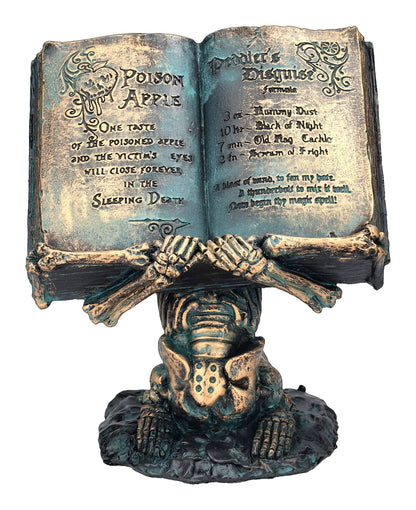 POISON
APPLE
ONE TASTE
OF THE POISONED APPLE
AND THE VICTIM'S EYES
WILL CLOSE FOREVER
IN THE
SLEEPING DEATH
Peddler's
Disguise
Formula
3 oz - Mummy Dust
10 hr - Black of Night
7 mn - Old Hag Cackle
2 fn - Scream of Fright
A blast of wind, to fan my hate.
A thunderbolt to mix it well.
Now begin thy magic spell!